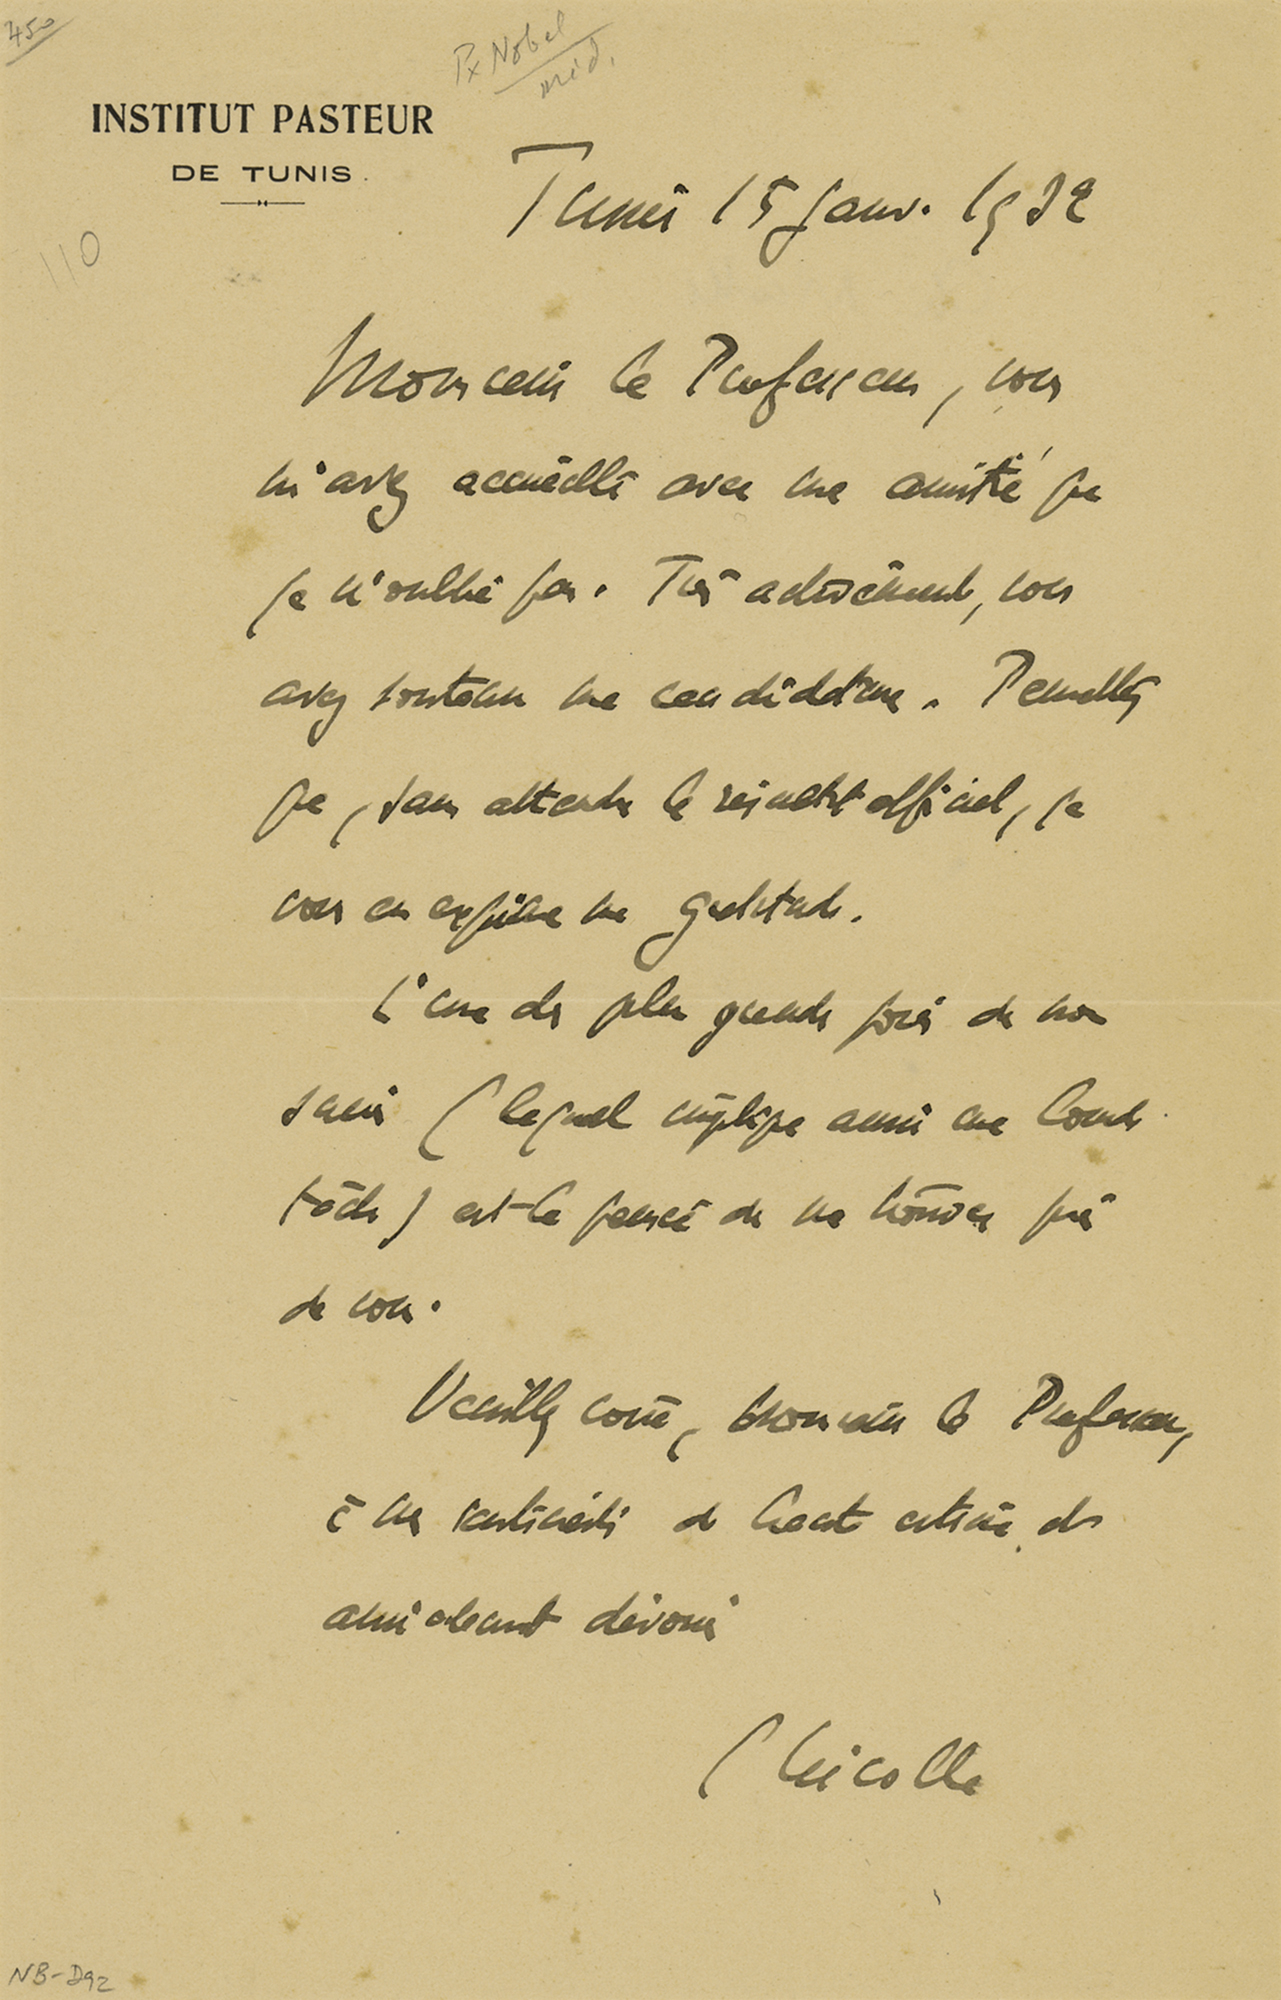 450
Px Nobel
méd.
INSTITUT PASTEUR
DE TUNIS.
Tunis 15 janv. 1932
110
Monsieur le Professeur, vous
m'avez accueilli avec une amitié que
je n'oublie pas. Très activement, vous
avez soutenu ma candidature. Permettez
que, sans attendre le résultat officiel, je
vous en exprime ma gratitude.
L'une des plus grandes joies de mon
succès (lequel implique aussi une lourde
tâche) est la pensée de me trouver près
de vous.
Veuillez croire, Monsieur le Professeur,
à mes sentiments de haute estime et de
amical dévoué
C Nicolle
NB-D92